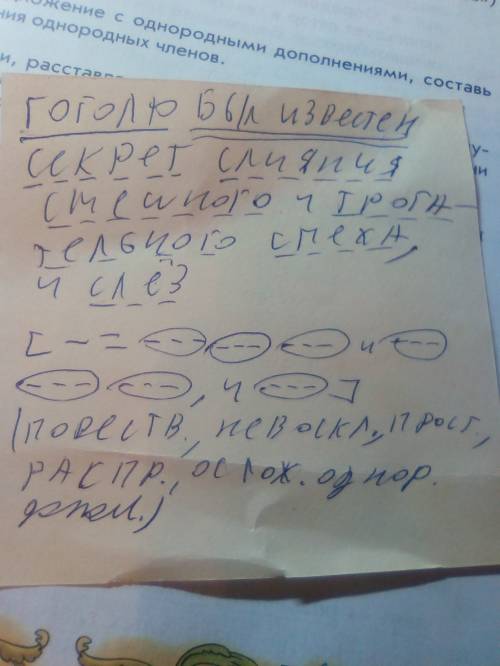 ложение с однородными дополнениями, составь
ния однородных членов.
и, расставля
ГОГОЛЮ БЫЛ ИЗВЕСТЕН
СЕКРЕТ СЛИЯНИЯ
СМЕШНОГО И ТРОГА-
ТЕЛЬНОГО СМЕХА,
И СЛЁЗ
[ - = --- --- --- и ---
--- ---, и --- ]
(ПОВЕСТВ., НЕВОСКЛ., ПРОСТ,
РАСПР., ОСЛОЖ. ОДНОР.
допол.)